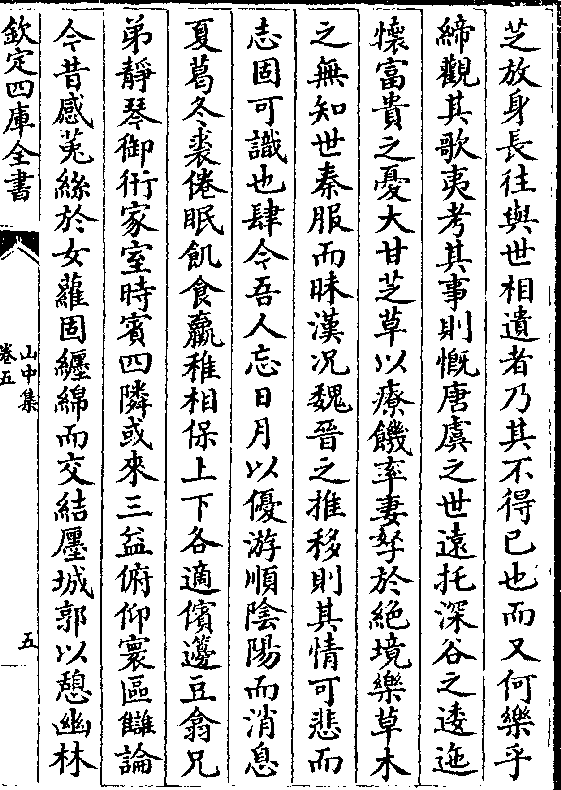 芝放身長往與世相遺者乃其不得已也而又何樂乎
締觀其歌夷考其事則慨唐虞之世遠托深谷之逶迤
懐富貴之憂大甘芝草以療饑率妻孥於絶境樂草木
之無知世秦服而昧漢况魏晉之推移則其情可悲而
志固可識也肆今吾人忘日月以優游順陰陽而消息
夏葛冬裘倦眠飢食羸稚相保上下各適儐籩豆翕兄
弟靜琴御衎家室時賓四隣或來三益俯仰寰區讎論
今昔感莵絲於女蘿固纒綿而交結廛城郭以憩幽林
欽定四庫全書
山中集
卷五
五